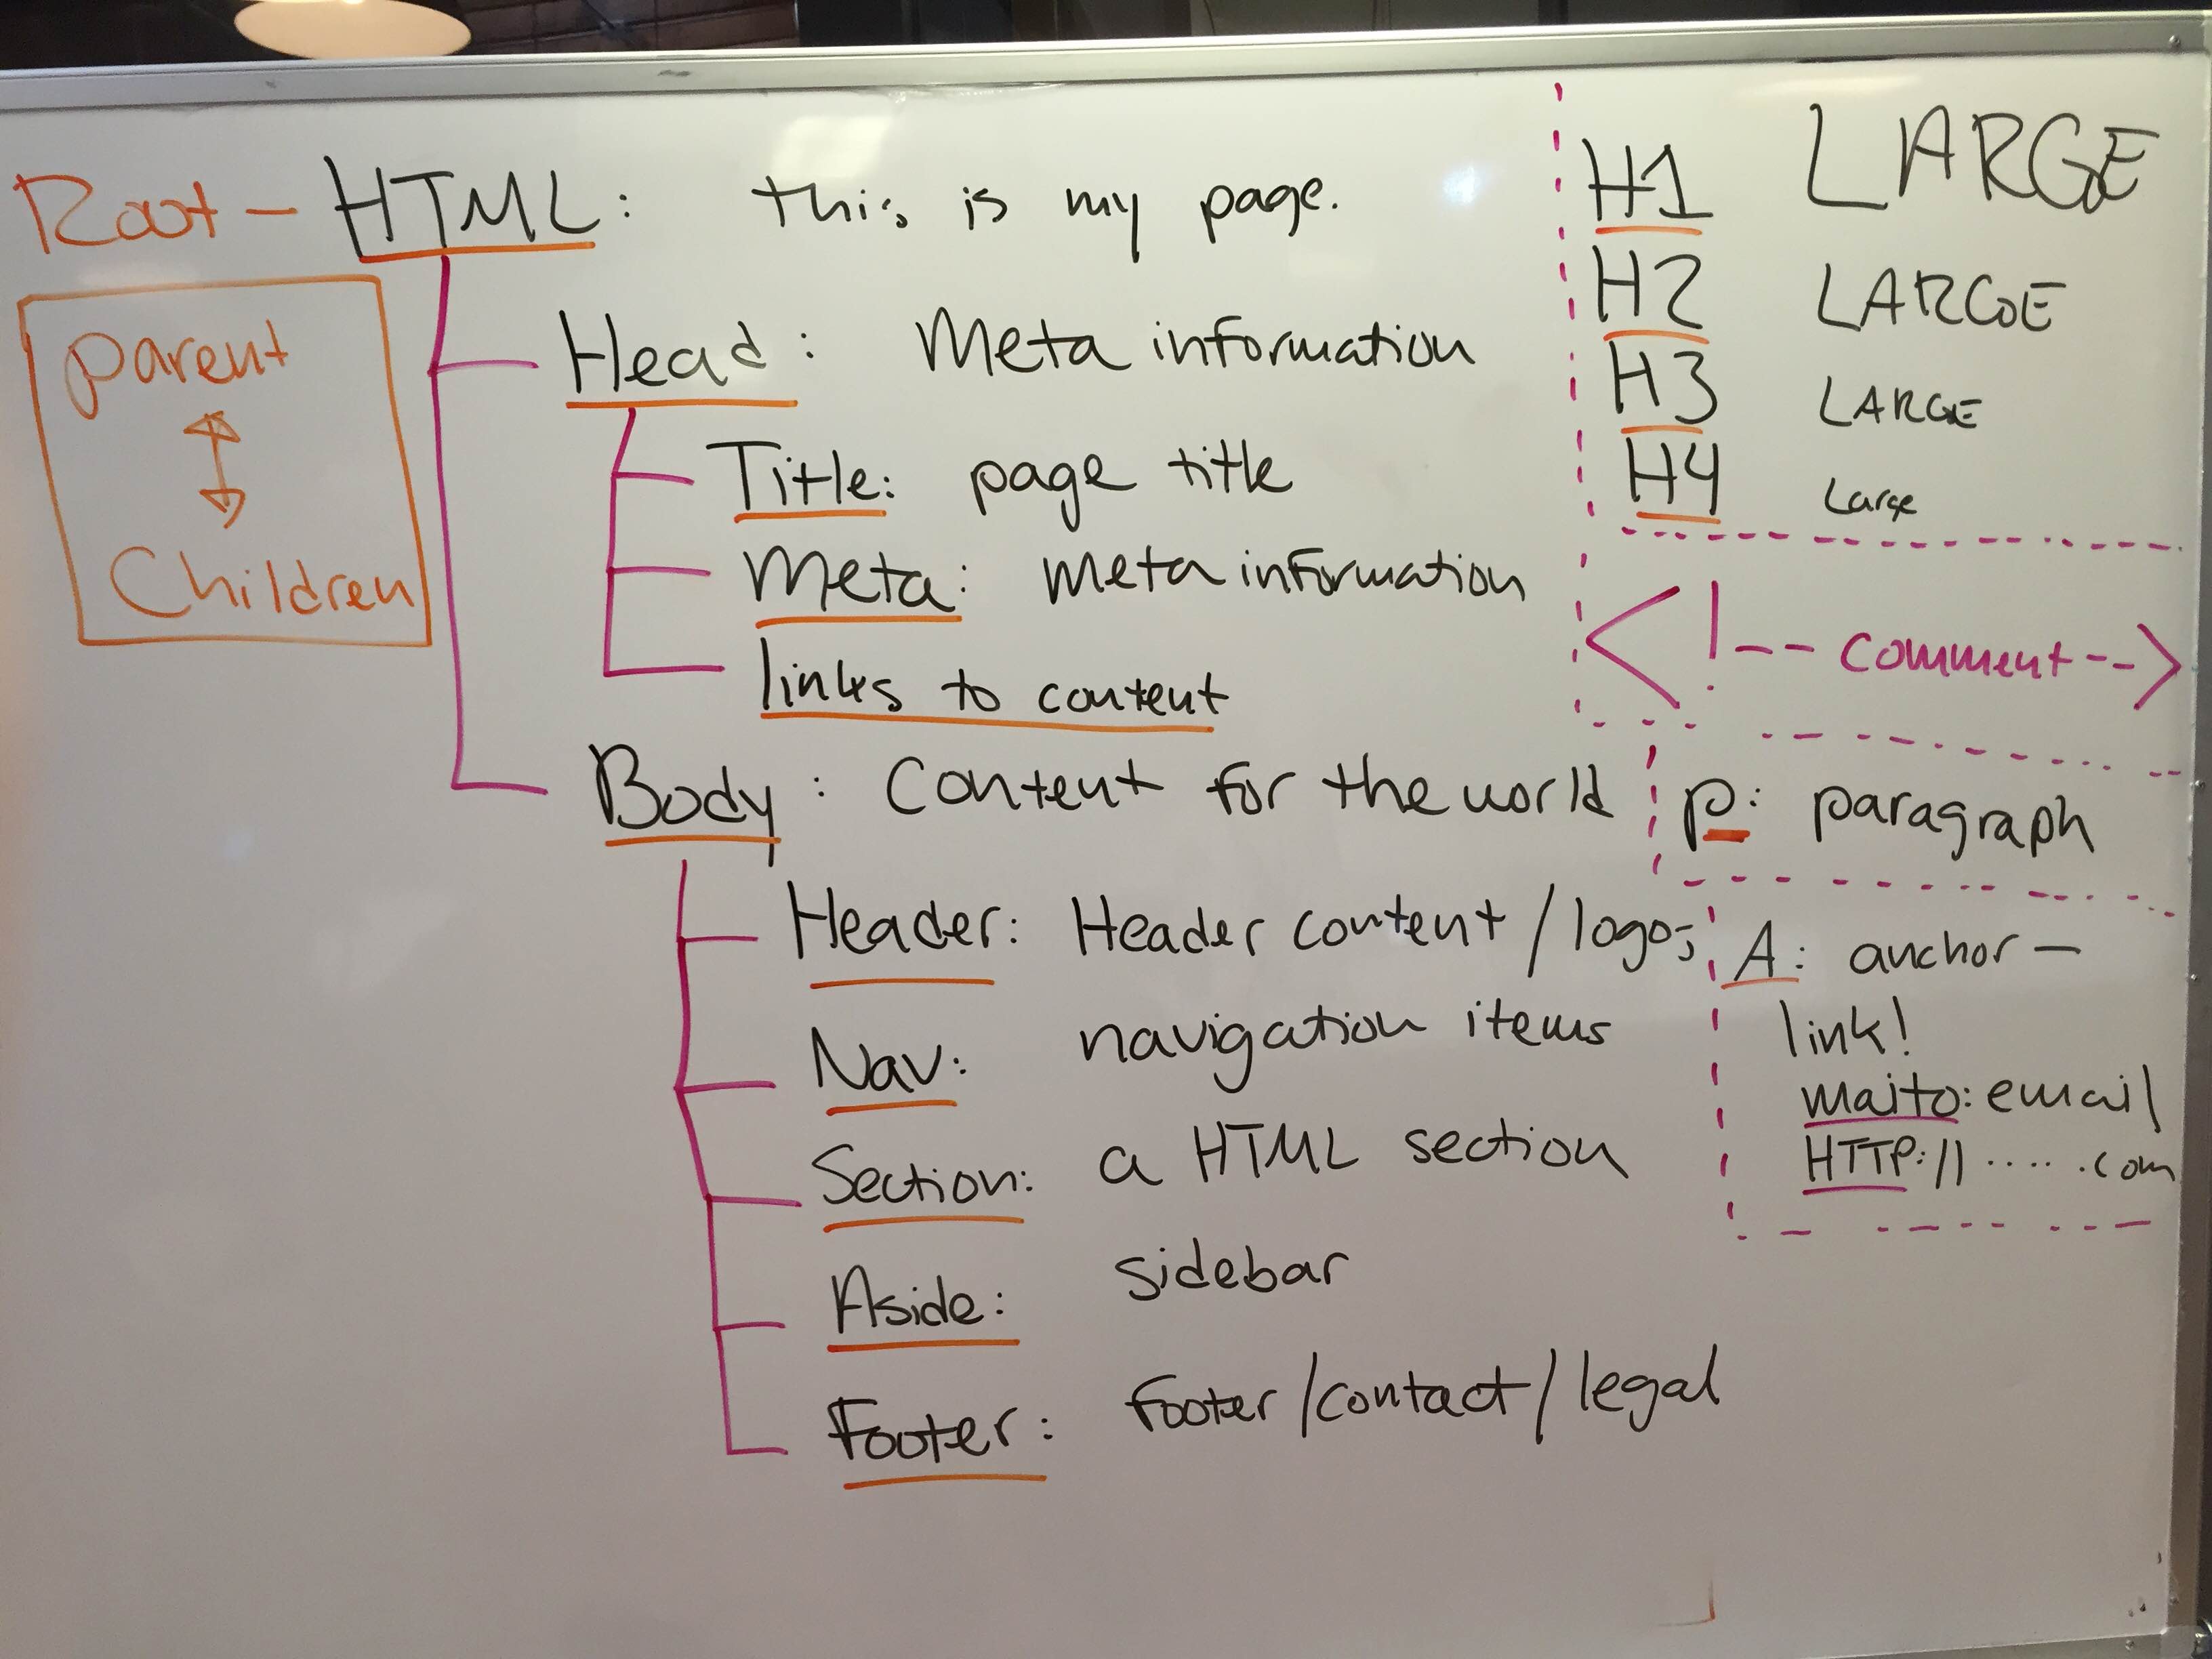 Root - HTML: this is my page.
parent
Children
Head: Meta information
Title: page title
Meta: Meta information
links to content
Body: Content for the world
Header: Header content / logos
Nav: navigation items
Section: a HTML section
Aside: sidebar
Footer: footer / contact / legal
H1 LARGE
H2 LARGE
H3 LARGE
H4 Large
<!-- comment -->
p: paragraph
A: anchor -
link!
maito: email
HTTP:// ..... .com